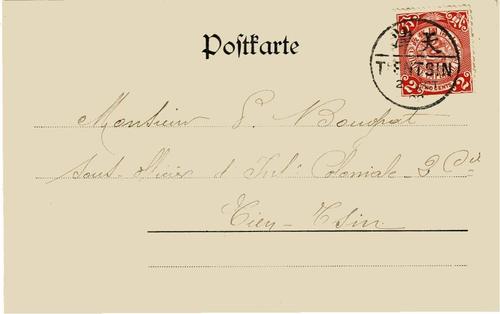 Postkarte
2 2
津天
TIENTSIN
TWO CENTS
Monsieur P. Bouquat
sous-officier d' Inf.ie Coloniale - 2 Cie
Tien-Tsin